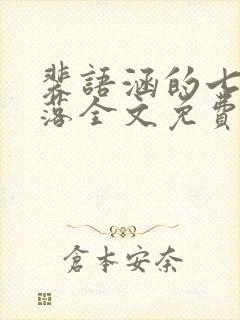 裴語涵的七
落全文免費
倉本安奈